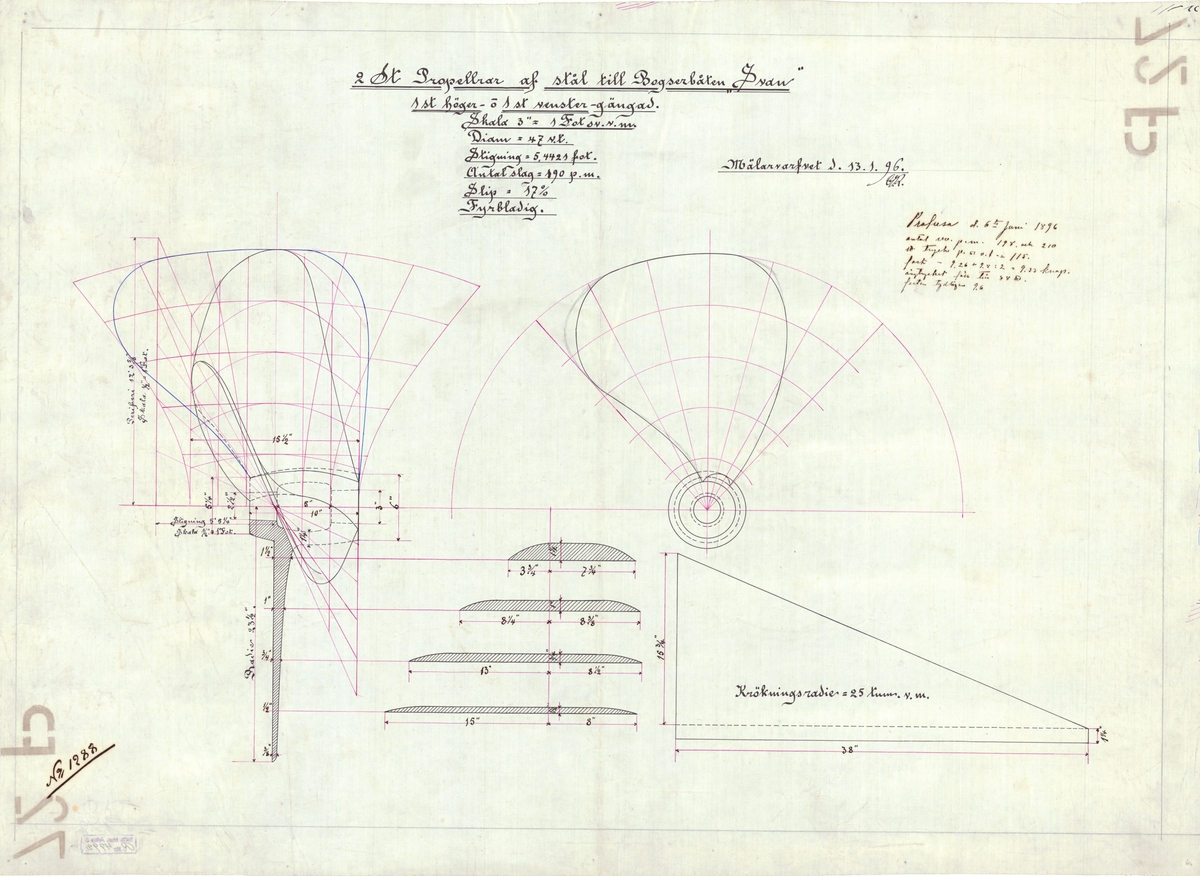 2 St Propellrar af stål till Bogserbåten "Svan"
1 st höger- o 1 st venster-gängad.
Skala 3" = 1 Fot sv. v. m.
Diam = 47 v.t.
Stigning = 5,4421 fot.
Antal slag = 190 p.m.
Slip = 17%
Fyrbladig.
Mälarvarfvet d. 13.1.96.
Profresa d. 6te Juni 1896
antal rev. p.m. 198 och 210
Periferi 12' 3 5/8"
Skala 1/2" = 1 Fot.
15 1/2"
5 1/4"
2 1/2"
8"
10"
3"
6"
Stigning 5' 5 1/4"
Skala 1/2" = 1 Fot.
Radie 23 1/2"
1 1/2"
1"
3/4"
1/2"
3 3/4"
7 3/4"
8 1/4"
8 3/8"
13"
8 1/2"
15"
8"
15 3/4"
Krökningsradie = 25 tum. v. m.
38"
1 1/4"
No 1288